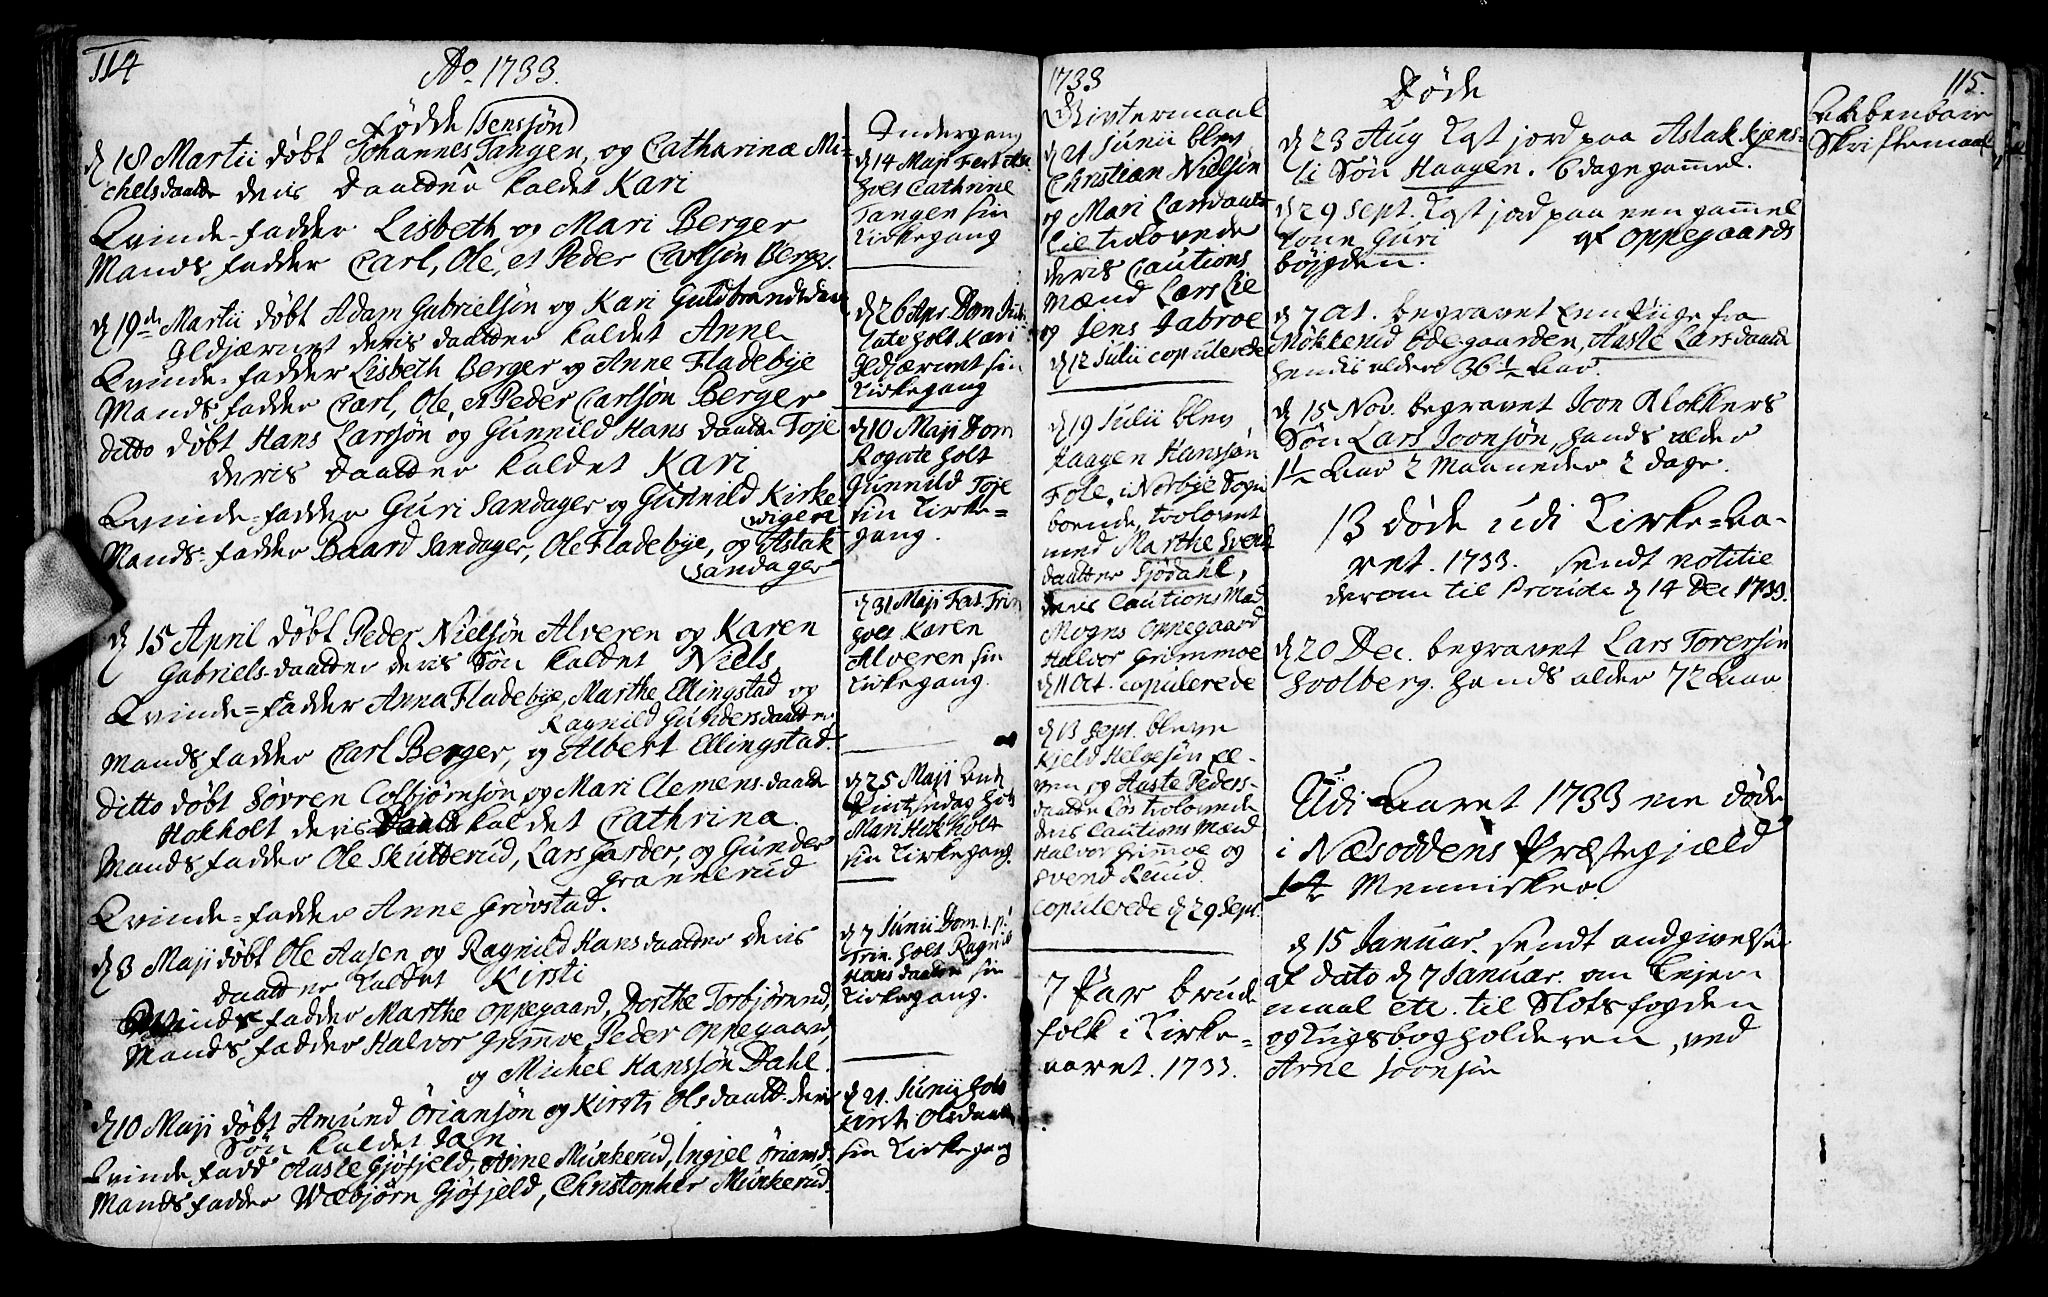 114
Ao 1733.
Födde
Jenssön
d 18 Martii döbt Johannes Tangen, og Catharinæ Mi-
chelsdaatter deris daatter kaldet Kari
Qvinde-fadder Lisbeth og Mari Berger
Mands fadder Carl, Ole, et Peder Carlsön Berger.
d 19de Martii döbt Adam Gabrielsön og Kari Guldbrandsdaatter
Gldjærnet deris daatter kaldet Anne
Qvinde-fadder Lisbeth Berger og Anne Fladebye
Mands fadder Carl, Ole, et Peder Carlsön Berger
ditto döbt Hans Larssön og Gunnild Hans daatter Toje
deris daatter kaldet Kari
Qvinde-fadder Guri Sandager og Gunnild Kirke-
vigen
Mands-fadder Baard Sandager, Ole Fladebye, og Aslak
Sandager
d 15 April döbt Peder Nielsön Alveren og Karen
Gabriels-daatter deris Sön kaldet Niels
Qvinde-fadder Anna Fladebye, Marthe Ellingstad og
Ragnild Gundersdaatter
Mands fadder Carl Berger, og Albert Ellingstad.
ditto döbt Sörren Colbjörnsön og Mari Clemens-daatter
Hokholt deris daatter kaldet Cathrina.
Mands fadder Ole Skutterud, Lars Garder, og Gunder
Grannerud
Qvinde-fadder Anne Grövstad.
d 3 Maji döbt Ole Aasen og Ragnild Hansdaatter deris
daatter kaldet Kirsti
Qvinds fadder Marthe Oppegaard, Dorthe Torbjörnrud,
Mands fadder Halvor Grimmoe, Peder Oppegaard,
og Michel Hanssön Dahl.
d 10 Maji döbt Amund Öriansön og Kirsti Olsdaatt. deris
Sön kaldet Jan
Qvinde fadd Aaste Gjöfjeld, Anne Munkerud, Ingjel Öriansd.
Mands fadder Webjörn Gjöfjeld, Christopher Munkerud.
Indergang
d 14 Maji Fest. Asc.
holt Cathrine
Tangen sin
Kirkegang
d 26 Apr Dom Jubi-
late holt Kari
Gldjærnet sin
Kirkegang
d 10 Maji Dom
Rogate holt
Gunnild Toje
sin Kirke-
gang.
d 31 Maji Fest. Trin
holt Karen
Alveren sin
Kirkegang.
d 25 Maji Anden
Pintzedag holt
Mari Hokholt
sin Kirkegang.
d 7 Junii Dom. 1. p.
Trin. holt Ragnild
Hansdaatter sin
Kirkegang.
d 21. Junii holt
Kirsti Olsdaatter
sin Kirkegang
1733
Givtermaal
d 21 Junii blev
Christian Nielsön
og Mari Larsdaatter
Lie trolovede
deris Cautions
Mænd Lars Lie
og Jens Jabroe
d 12 Julii copulerede
d 19 Julii blev
Haagen Hanssön
Fole, i Norbye Sogn
boende, trolovet
med Marthe Svends
daatter Fjödahl,
deris Cautions Mænd
Mogns Oppegaard
Halvor Grimmoe
d 11 Oct. copulerede
d 13 Sept. bleve
Kield Helgesön El-
ven og Aaste Peders-
daatter Lös trolovede
deris Cautions Mænd
Halvor Grimmoe og
Svend Ruud.
copulerede d 29 Sept.
7 Par brude
folk i Kirke-
aaret. 1733.
Döde
d 23 Aug kast jord paa Aslak Kjens-
li Sön Haagen. 6 dage gammel.
d 29 Sept. kast jord paa een gammel
kone Guri af Oppegaards
böjgden.
d 7 Oct. begravet een Pige fra
Mökkerud Ödegaarden, Aaste Larsdaatter
hendis alder 36 1/2 Aar.
d 15 Nov. begravet Joon Klokkers
Sön Lars Joonsön, hands alder
1 1/2 Aar 2 Maaneder 2 dage.
13 döde udi Kirke-Aa-
ret. 1733. sendt notitie
derom til Provsten d 14 Dec 1733.
d 20 Dec. begravet Lars Torersön
Svolberg. hands alder 72 Aar
Udi Aaret 1733 ere döde
i Næsoddens Præstegjæld
14 Mennisker.
d 15 Januar. sendt andgivelse
af dato d 7 Januar. om Lejer-
maal etc. til Slotsfogden
og Tugsbogholderen, ved
Arne Joonsön
115.
Aabenbare
Skriftemaal